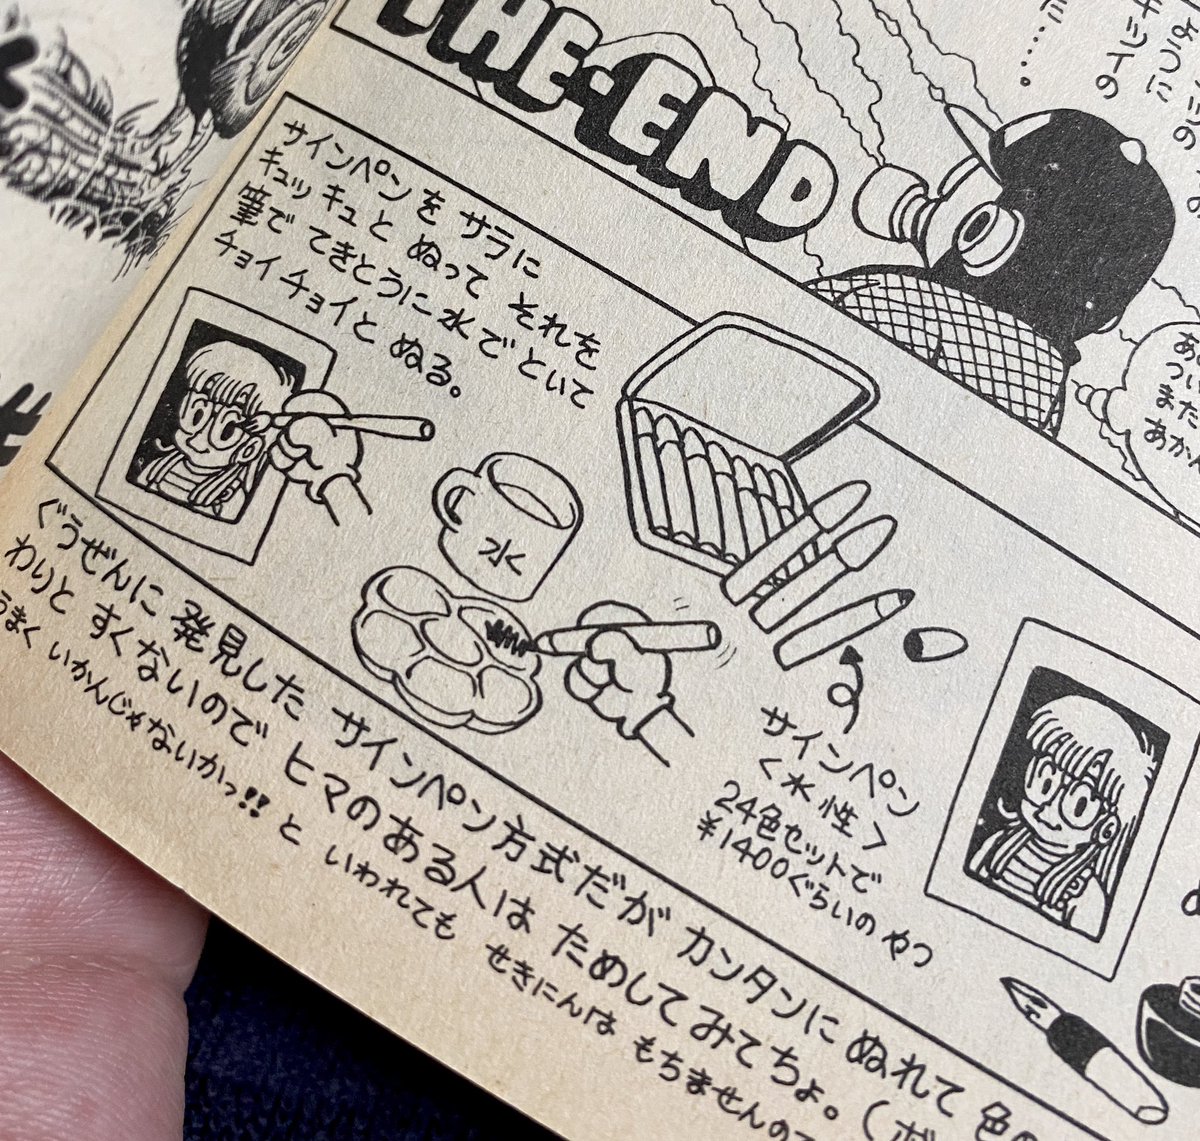 THE・END
サインペンを サラに
キュッキュと ぬって それを
筆で てきとうに水で といて
チョイチョイと ぬる。
水
サインペン
<水性>
24色セットで
¥1400ぐらいの やつ
ぐうぜんに 発見した サインペン方式だが カンタンに ぬれて 色の
わりと すくないので ヒマのある人は ためしてみてちょ。(ボ
うまく いかんじゃないかっ!! と いわれても せきにんは もちませんので